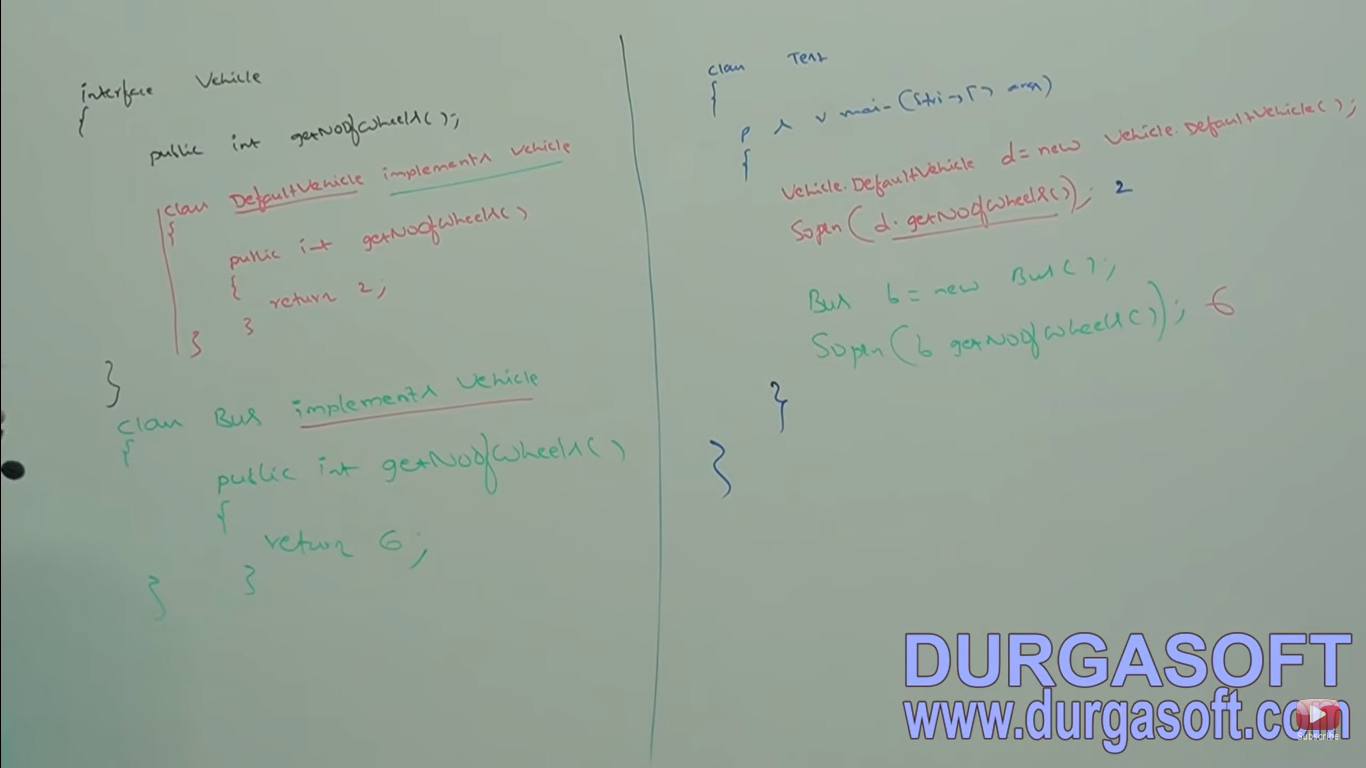 interface Vehicle
{
public int getNoOfWheels();
class DefaultVehicle implements Vehicle
{
public int getNoOfWheels()
{
return 2;
}
}
}
class Bus implements Vehicle
{
public int getNoOfWheels()
{
return 6;
}
}
class Test
{
p s v main(String[] args)
{
Vehicle.DefaultVehicle d = new Vehicle.DefaultVehicle();
Sopln(d.getNoOfWheels()); 2
Bus b = new Bus();
Sopln(b getNoOfWheels()); 6
}
}
DURGASOFT
www.durgasoft.com
Subscribe